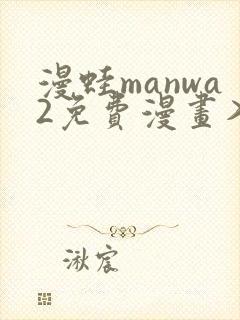 漫蛙manwa
2免費漫畫入
湫宸